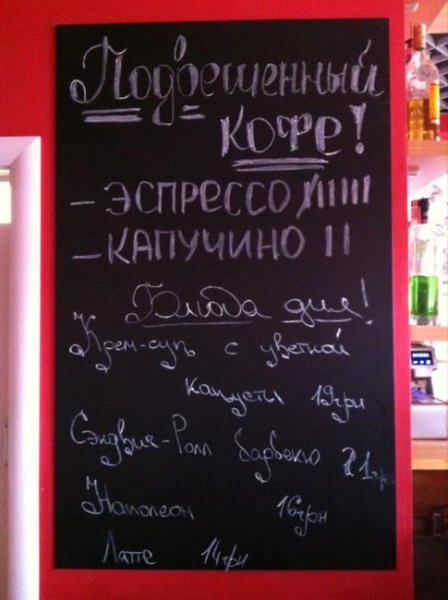 Подвешенный
кофе!
- ЭСПРЕССО IIIIII
- КАПУЧИНО II
Блюда дня!
Крем-суп с цветной
капусты 19грн
Сэндвич-Ролл барбекю 21гр.
Наполеон 16грн
Латте 14грн